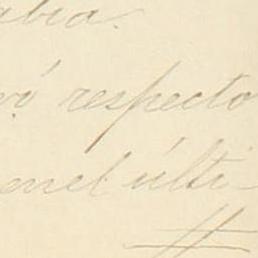 abia.
vó respecto
en el últi-